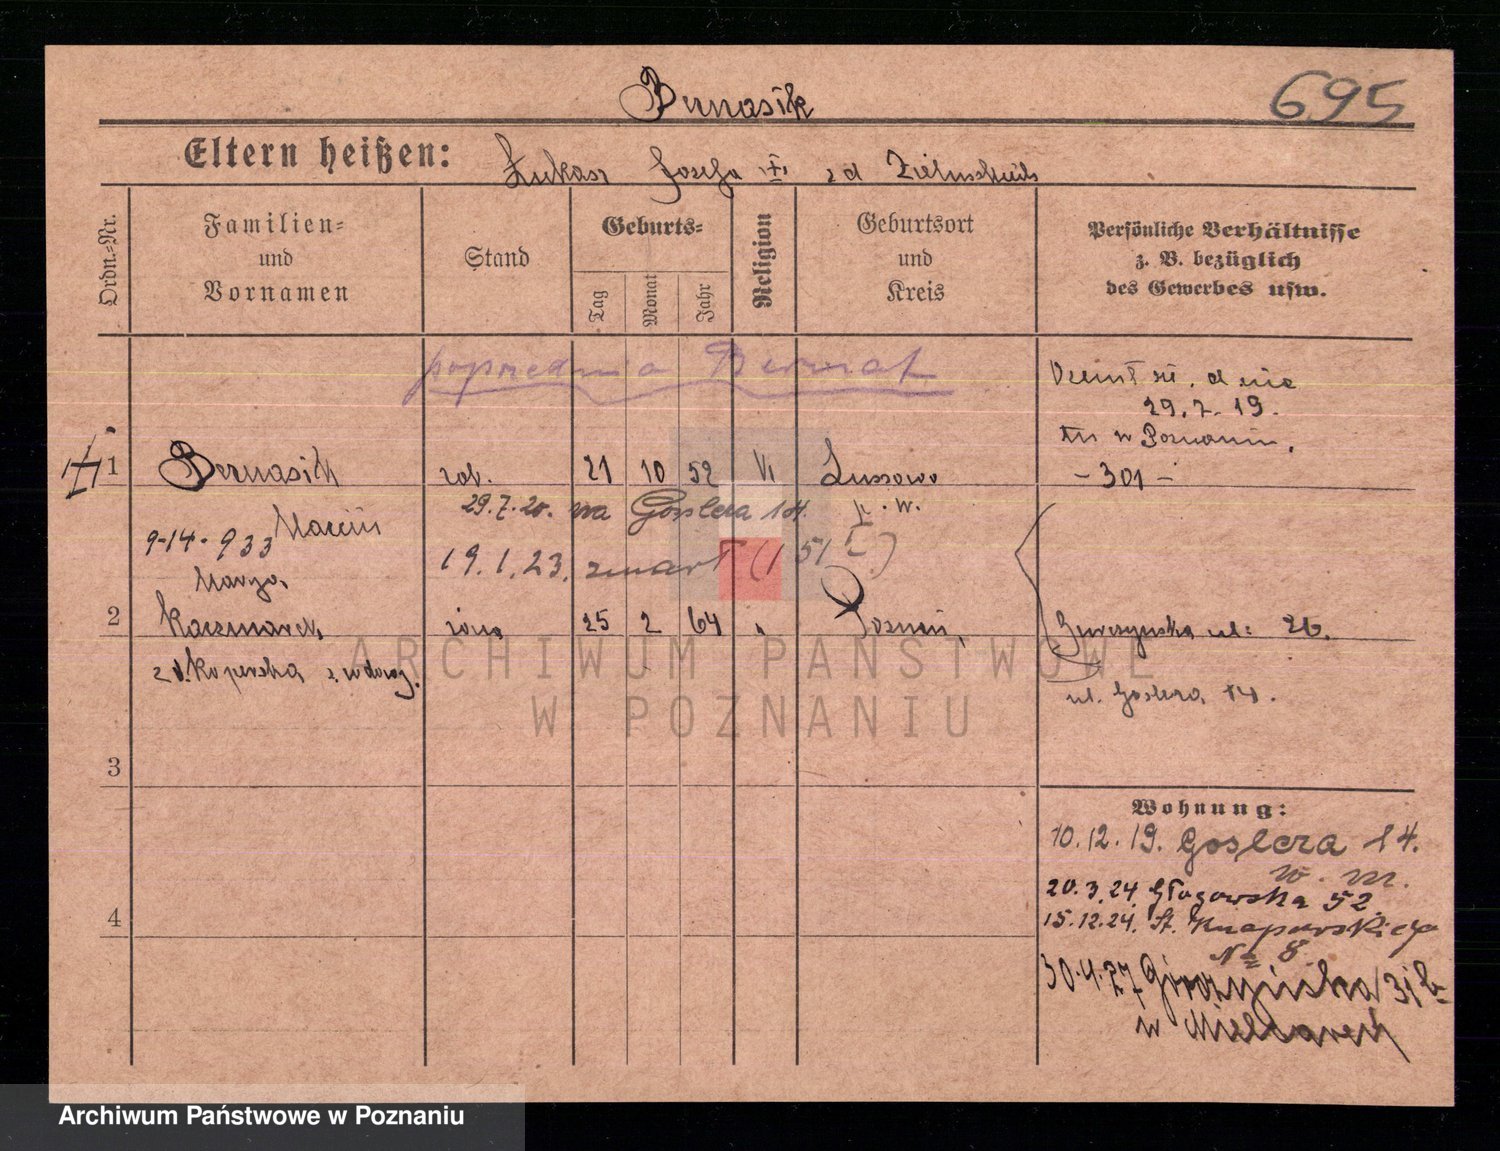 Bernasik 695
Eltern heißen: Łukasz Josefa z d Zielinskich
Ordn.-Nr.
Familien-
und
Vornamen
Stand
Geburts-
Tag
Monat
Jahr
Religion
Geburtsort
und
Kreis
Persönliche Verhältnisse
z. B. bezüglich
des Gewerbes usw.
poprzednio Bernat
dnia
29. 7. 19.
w Poznaniu.
- 301 -
1 Bernasik rob. 21 10 52 Lussowo
Marcin
29.7.20. na Goslera 14. p. w.
9-14-933
19.1.23. zmarł (151 I)
Marya
2 Kaczmarek żona 25 2 64 " Poznań,
Gurczynska ul: 26.
z d. Koperska z. wdowy.
ul. Goslera 14.
3
Wohnung:
10.12.19. Goslera 14.
w. m.
20.3.24. Głogowska 52
15.12.24. St. Knapowskiego
4
№ 8.
30.4.27 Górczyńska 31b
w Mielcarek
ARCHIWUM PAŃSTWOWE
W POZNANIU
Archiwum Państwowe w Poznaniu